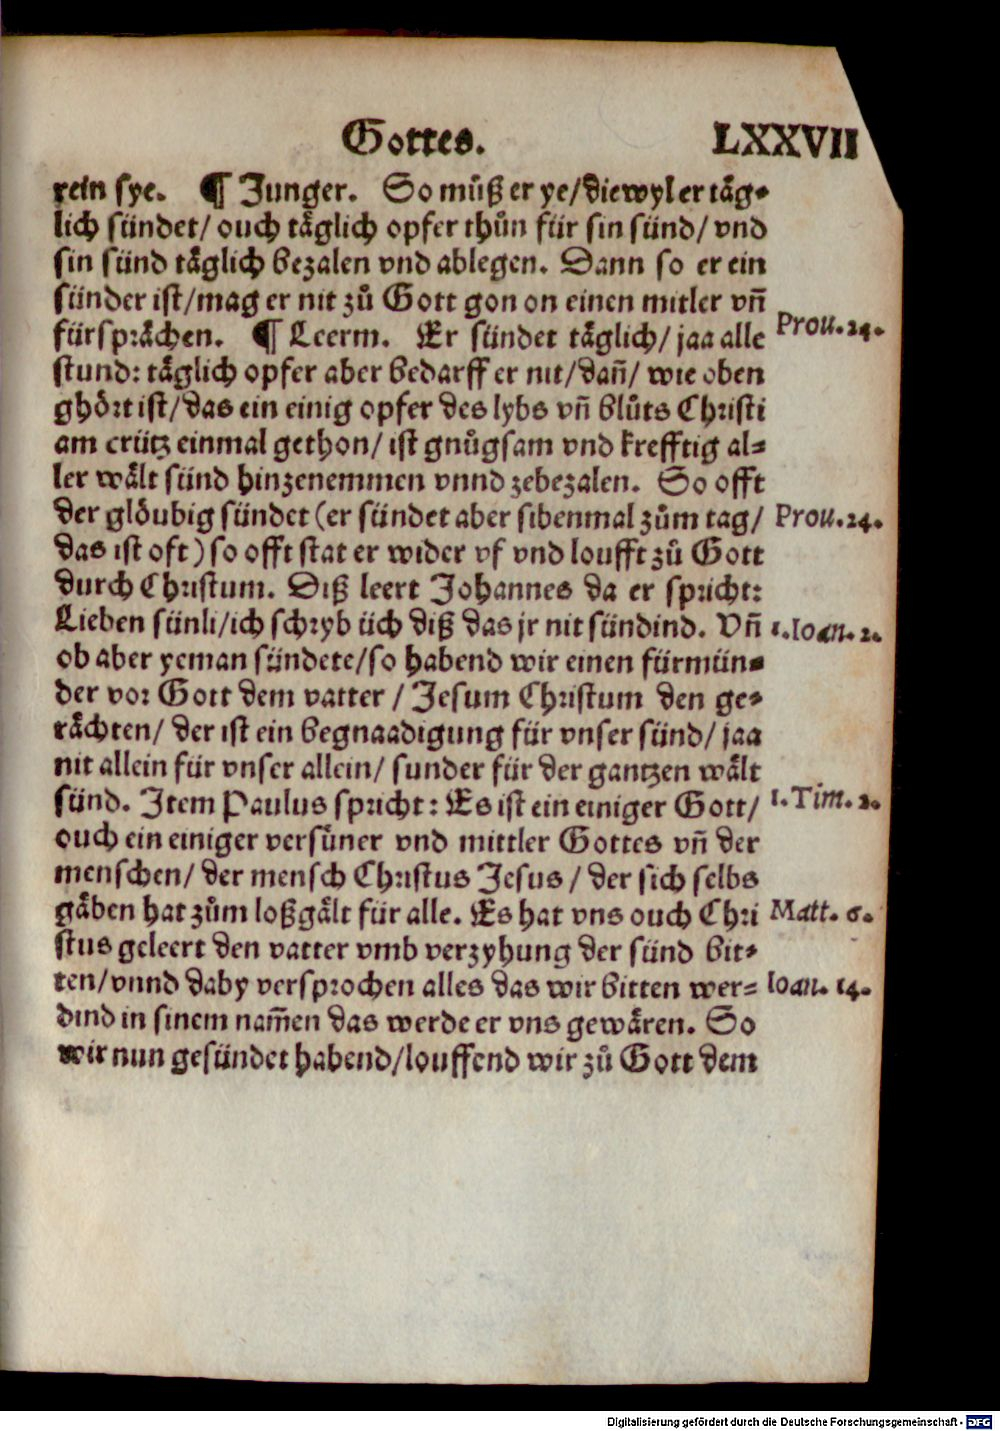 Gottes. LXXVII
rein sye. ¶ Junger. So muͤß er ye/diewyl er taͤg-
lich suͤndet/ ouch taͤglich opfer thuͦn fuͤr sin suͤnd/ vnd
sin suͤnd taͤglich bezalen vnd ablegen. Dann so er ein
suͤnder ist/mag er nit zuͦ Gott gon on einen mitler vñ
fuͤrspraͤchen. ¶ Leerm. Er suͤndet taͤglich/ jaa alle Prou. 24.
stund: taͤglich opfer aber bedarff er nit/dañ/ wie oben
ghoͤrt ist/das ein einig opfer des lybs vñ bluͦts Christi
am cruͤtz einmal gethon/ ist gnuͦgsam vnd krefftig al-
ler waͤlt suͤnd hinzenemmen vnnd zebezalen. So offt
der gloͤubig suͤndet (er suͤndet aber sibenmal zuͦm tag/ Prou. 24.
das ist oft) so offt stat er wider vf vnd loufft zuͦ Gott
durch Christum. Diß leert Johannes da er spricht:
Lieben suͤnli/ich schryb uͤch diß das jr nit suͤndind. Vñ 1. Ioan. 2.
ob aber yeman suͤndete/so habend wir einen fuͤrmuͤn-
der vor Gott dem vatter / Jesum Christum den ge-
raͤchten/ der ist ein begnaadigung fuͤr vnser suͤnd/ jaa
nit allein fuͤr vnser allein/ sunder fuͤr der gantzen waͤlt
suͤnd. Item Paulus spricht: Es ist ein einiger Gott/ 1. Tim. 2.
ouch ein einiger versuͤner vnd mittler Gottes vñ der
menschen/ der mensch Christus Jesus / der sich selbs
gaͤben hat zuͦm loßgaͤlt fuͤr alle. Es hat vns ouch Chri Matt. 6.
stus geleert den vatter vmb verzyhung der suͤnd bit-
ten/vnnd daby versprochen alles das wir bitten wer- Ioan. 14.
dind in sinem nam̃en das werde er vns gewaͤren. So
wir nun gesuͤndet habend/louffend wir zuͦ Gott dem
Digitalisierung gefördert durch die Deutsche Forschungsgemeinschaft - DFG